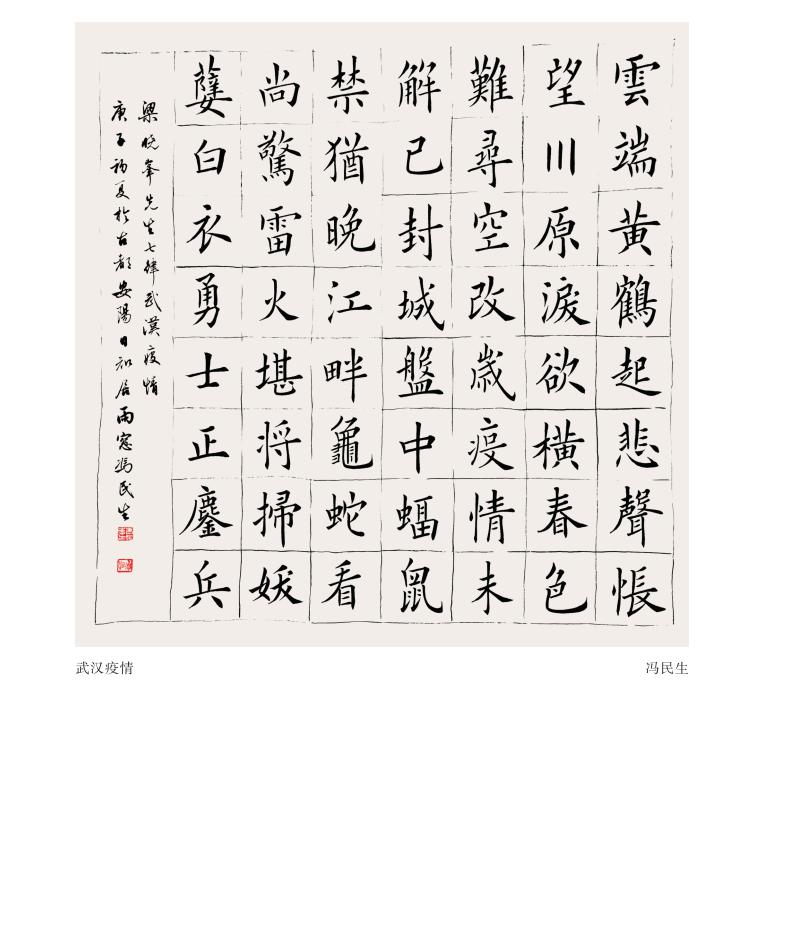 雲端黄鶴起悲聲悵
望川原淚欲橫春色
難尋空改歲疫情未
解已封城盤中蝠鼠
禁猶晚江畔龜蛇看
尚驚雷火堪將掃妖
孽白衣勇士正鏖兵
梁曉峯先生七律武漢疫情
庚子初夏於古都安陽日知居雨窗馮民生
武汉疫情
冯民生